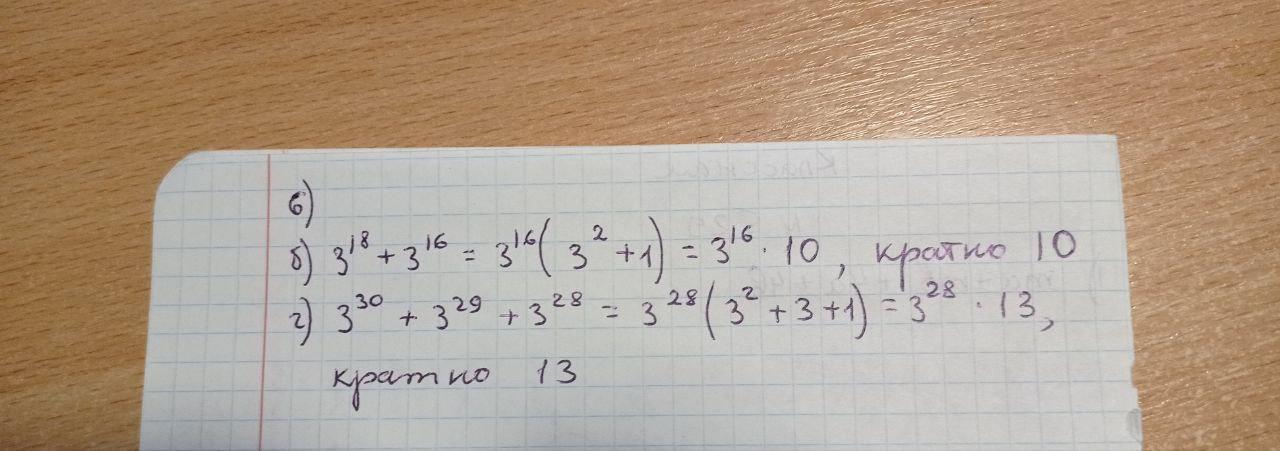 6)
б) 3^18 + 3^16 = 3^16 ( 3^2 + 1 ) = 3^16 · 10 , кратно 10
г) 3^30 + 3^29 + 3^28 = 3^28 ( 3^2 + 3 + 1 ) = 3^28 · 13 ,
кратно 13